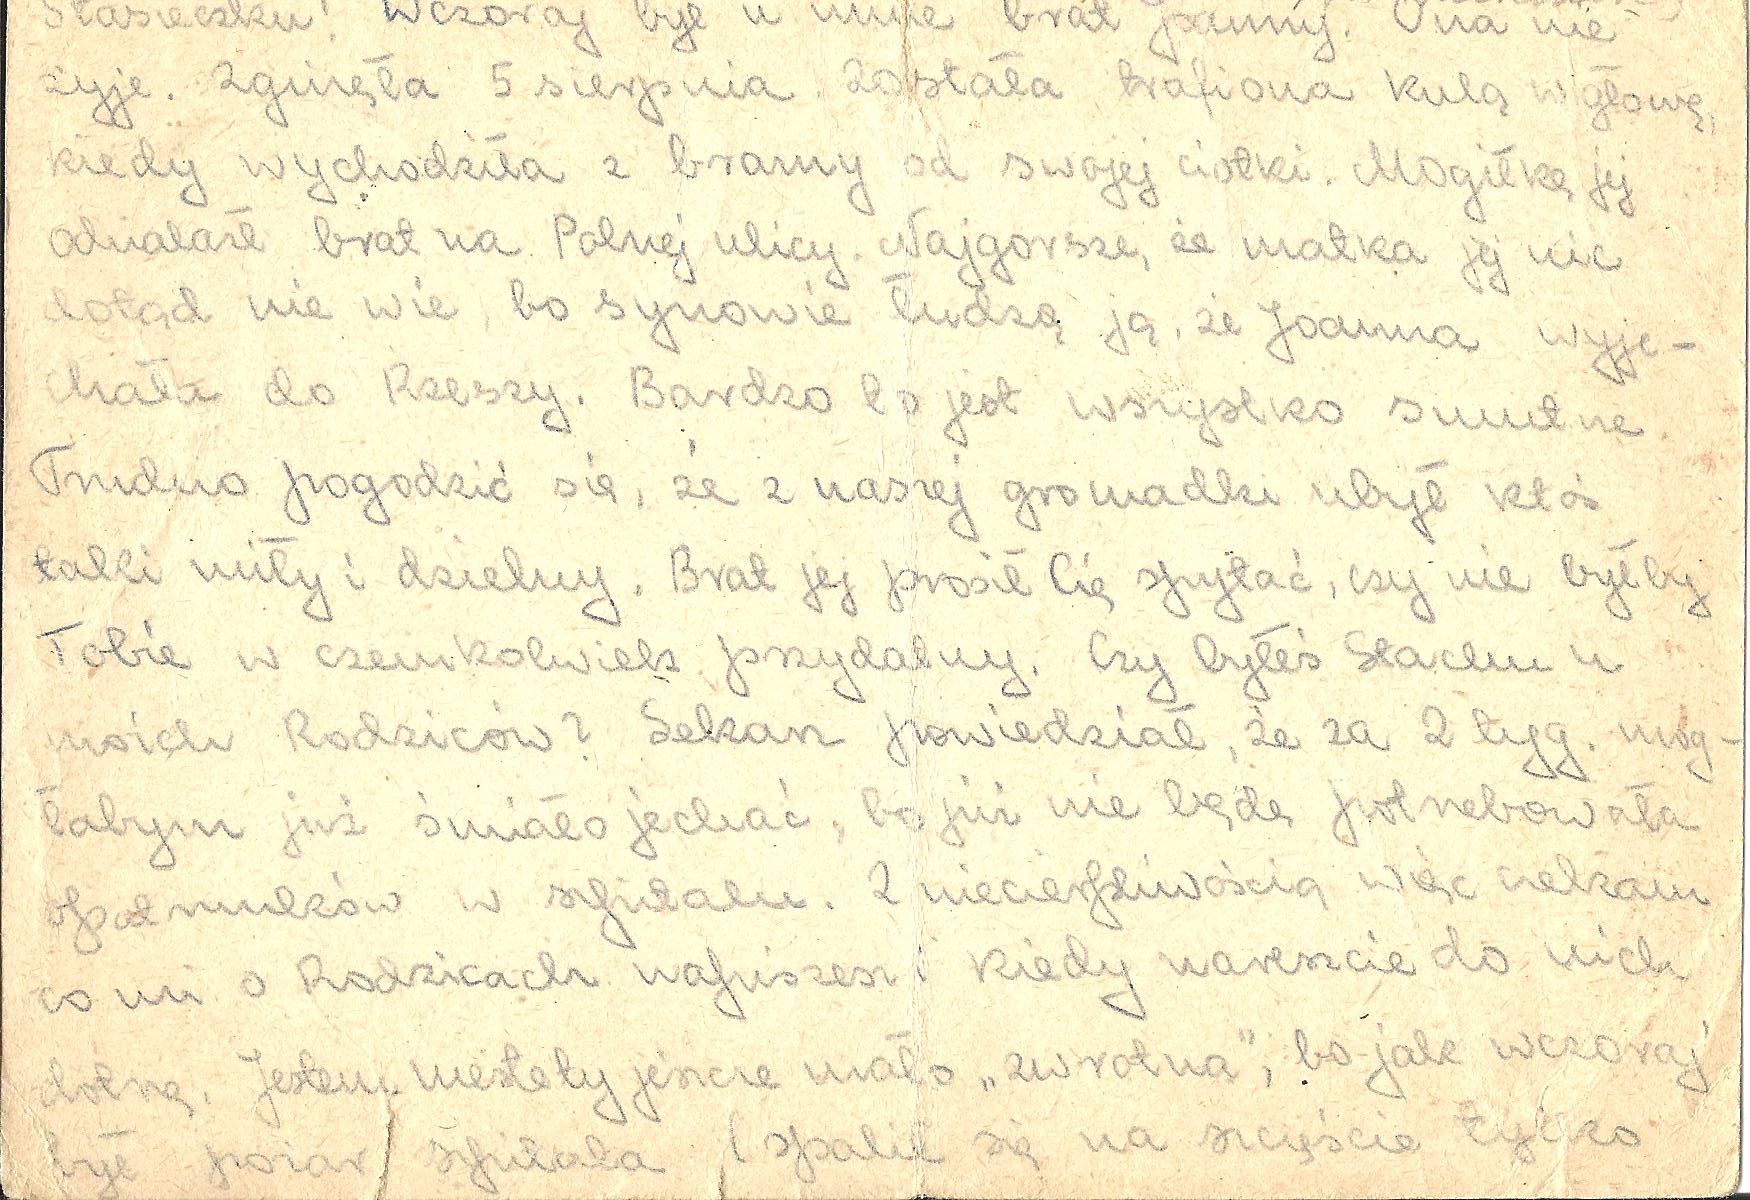 Stasieczku! Wczoraj był u mnie brat Joanny. Ona nie
żyje. Zginęła 5 sierpnia. Została trafiona kulą w głowę,
kiedy wychodziła z bramy od swojej ciotki. Mogiłkę jej
odnalazł brat na Polnej ulicy. Najgorsze, że matka jej nic
dotąd nie wie, bo synowie łudzą ją, że Joanna wyje-
chała do Rzeszy. Bardzo to jest wszystko smutne.
Trudno pogodzić się, że z naszej gromadki ubył ktoś
taki miły i dzielny. Brat jej prosił Cię spytać, czy nie byłby
Tobie w czemkolwiek przydatny. Czy byłeś Stachu u
moich Rodziców? Lekarz powiedział, że za 2 tyg. mog-
łabym już śmiało jechać, bo już nie będę potrzebowała
opatrunków w szpitalu. Z niecierpliwością więc czekam
co mi o Rodzicach napiszesz i kiedy nareszcie do nich
dotrę. Jestem niestety jeszcze mało „zwrotna”, bo jak wczoraj
był pożar szpitala (spalił się na szczęście tylko